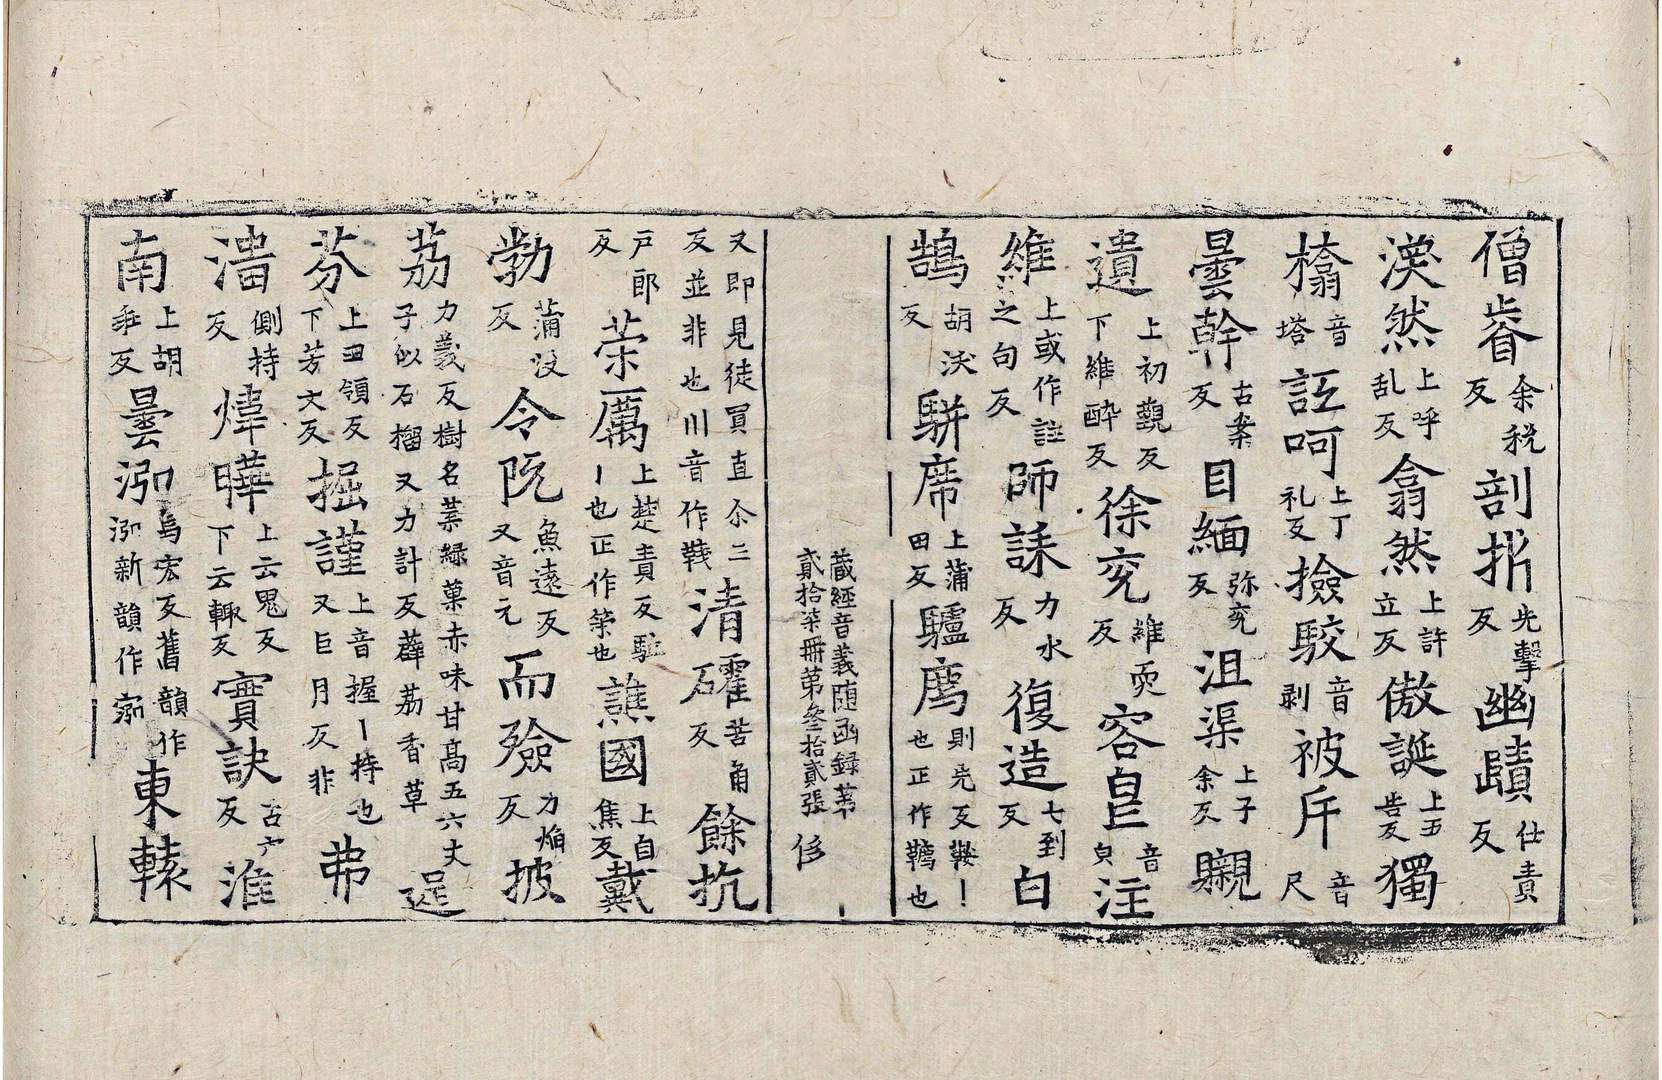 僧睿余税反剖析先擊反幽賾仕責反
渙然上呼乱反翕然上許立反傲誕上五告反獨
㯓音塔詆呵上丁礼反撿駮音剥被斥音尺
曇幹古案反目緬弥兖反沮渠上子余反覼
遺上初觀反下維醉反徐兖維耎反容皃音皃注
維上或作註之句反師誄力水反復造七到反白
鵠胡沃反駢席上蒲田反驢馬則先反鞍丨也正作韉也
藏經音義随函録苐貳拾柒冊苐叄拾貳張 侈
又即見徒買直尒三反並非也川音作韈清礭苦角反餘抗
戶郎反茦厲上楚責反駐丨也正作策也譙國上自焦反戴
勃蒲没反令阮魚遠反又音元而殮力焰反披
荔力義反樹名葉緑菓赤味甘高五六丈子似石榴又力計反薜荔香草逞
芬上丑領反下芳文反掘謹上音握丨持也又巨月反非弗
湽側持反煒曄上云鬼反下云輙反寶訣古穴反淮
南上胡乖反曇泓烏宏反舊韻作泓新韻作䆵東轅